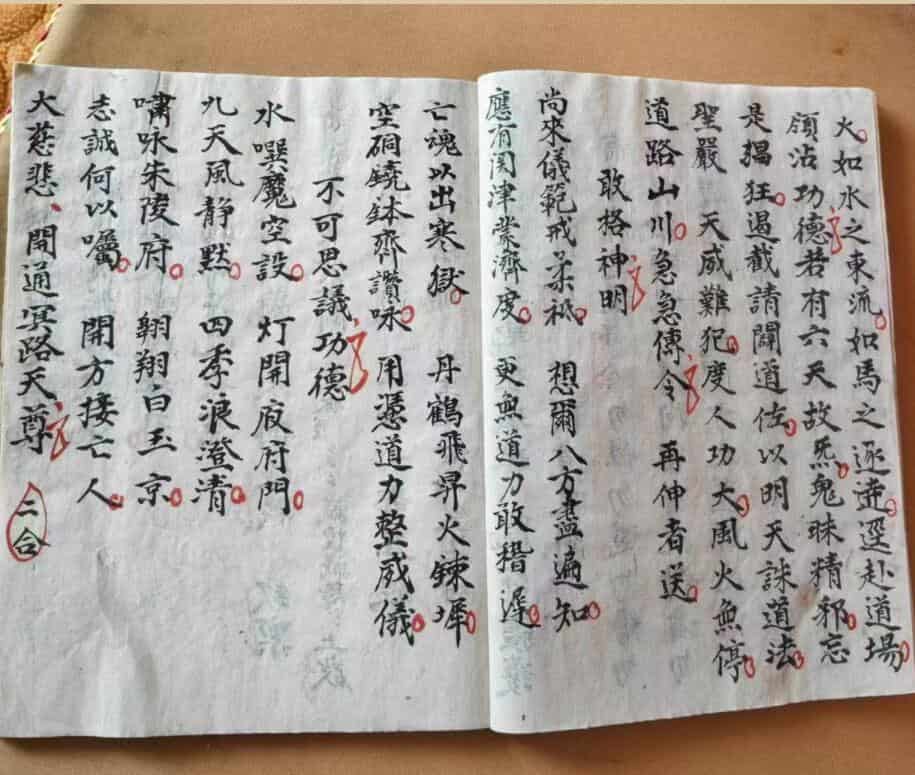 火如水之東流如馬之逐遊逕赴道場
領沾功德若有六天故炁鬼昧精邪忘
是猖狂遏截請關道佐以明天誅道法
聖嚴 天威難犯度人功大風火無停
道路山川急急傳令 再伸者送
敢格神明
尚來儀範戒柔祗 想爾八方盡遍知
應有関津業濟度 更無道力敢稽遲
亡魂以出寒獄 丹鶴飛昇火鍊墀
空硐鐃鉢齊讚咏 用憑道力整威儀
不可思議功德
水噀魔空設 灯開夜府門
九天風静默 四季浪澄清
嘯咏朱陵府 翱翔白玉京
志誠何以囑 開方接亡人
大慈悲、開通冥路天尊 二合